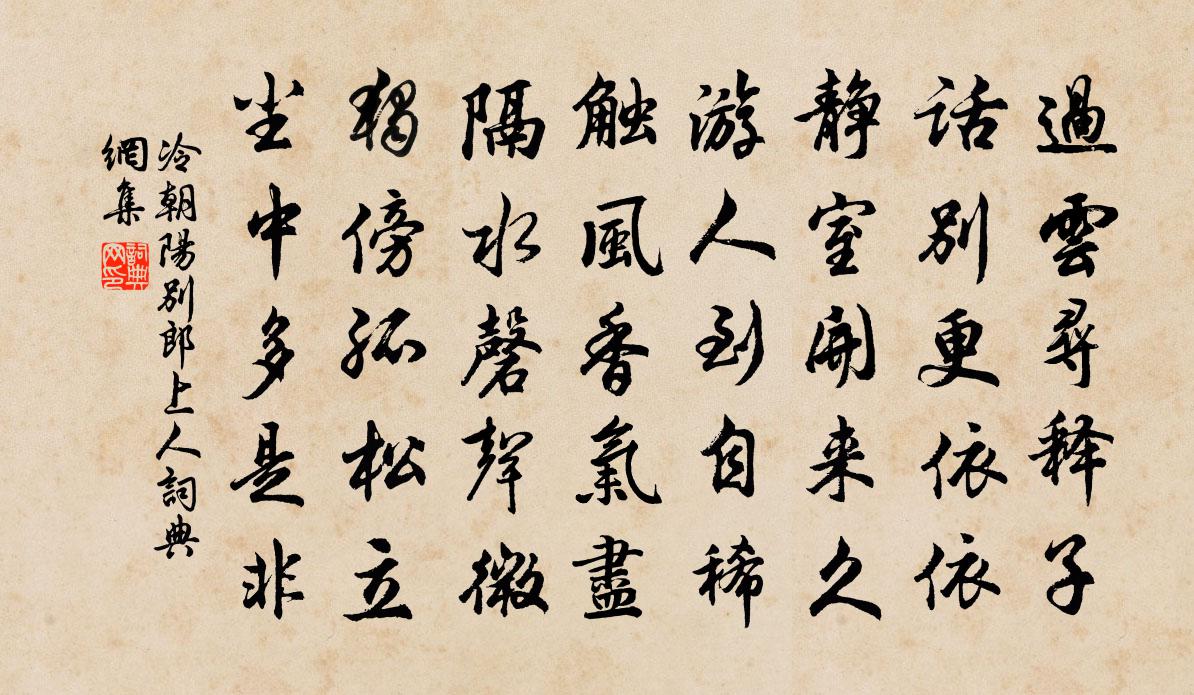 過雲尋释子
话别更依依
静室開来久
游人到自稀
触風香氣盡
隔水磬聲微
獨傍孤松立
尘中多是非
冷朝陽别郎上人詞典
網集
詞典
网印